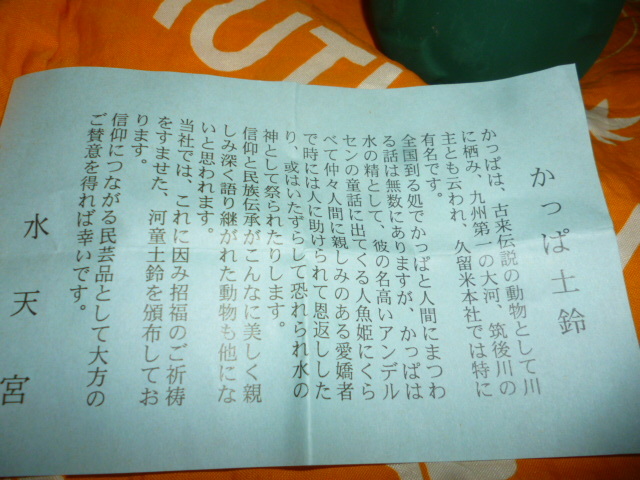 かっぱ土鈴
かっぱは、古来伝説の動物として川
に棲み、九州第一の大河、筑後川の
主とも云われ、久留米本社では特に
有名です。
全国到る処でかっぱと人間にまつわ
る話は無数にありますが、かっぱは
水の精として、彼の名高いアンデル
センの童話に出てくる人魚姫にくら
べて仲々人間に親しみのある愛嬌者
で時には人に助けられて恩返しした
り、或はいたずらして恐れられ水の
神として祭られたりします。
信仰と民族伝承がこんなに美しく親
しみ深く語り継がれた動物も他にな
いと思われます。
当社では、これに因み招福のご祈祷
をすませた、河童土鈴を頒布してお
ります。
信仰につながる民芸品として大方の
ご賛意を得れば幸いです。
水天宮